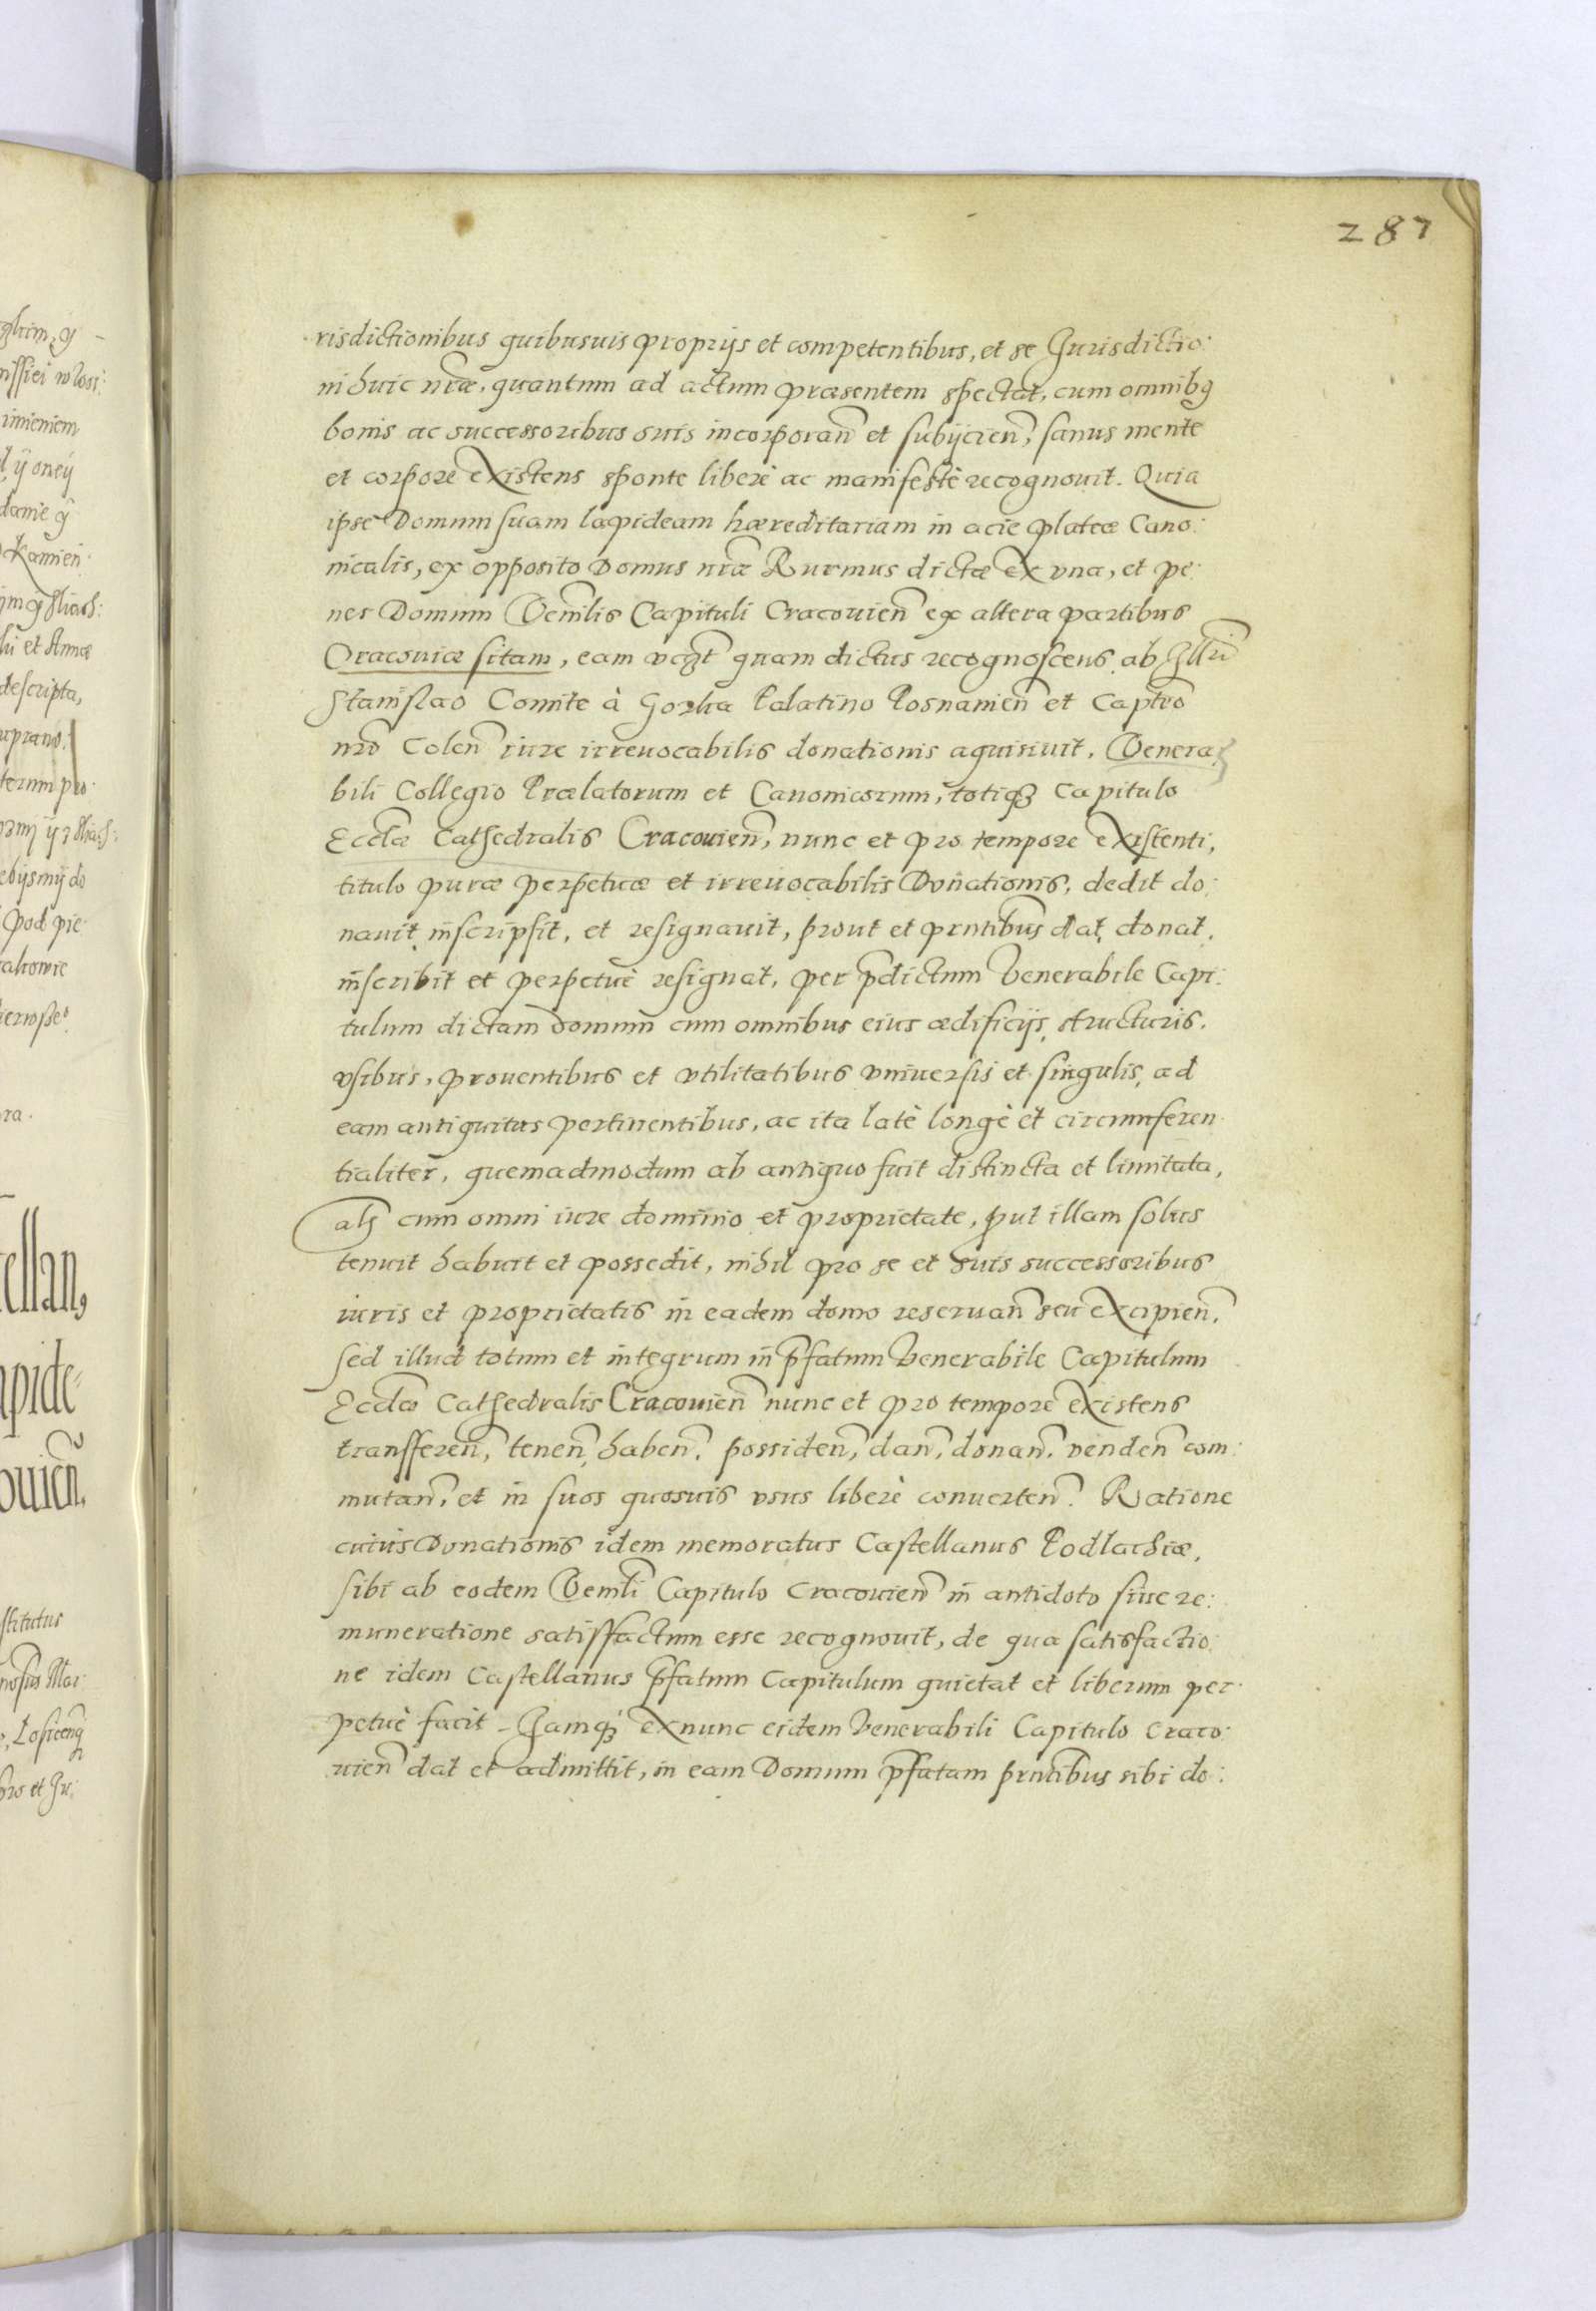 287
risdictionibus quibusuis proprijs et competentibus, et se Jurisdictio:
ni huic nr̃æ, quantum ad actum præsentem spectat, cum omnibꝯ
bonis ac successoribus suis incorporañ et subijcieñ, sanus mente
et corpore existens sponte liberè ac manifestè recognouit. Quia
ipse Domum suam lapideam hæreditariam in acie plateæ Cano:
nicalis, ex opposito Domus nr̃æ Rurmus dictæ ex vna, et pe:
nes Domum Veñlis Capituli Cracouieñ ex altera partibus
Cracouiæ sitam, eam vcꝫt quam dictus recognoscens ab Illr̃i
Stanislao Comite à Gorka Palatino Posnanieñ et Captr̃o
nr̃o Coleñ iure irreuocabilis donationis aquisiuit, Venera
bili Collegio Prælatorum et Canonicorum, totiqꝫ Capitulo
Eccl̃æ Cathedralis Cracouieñ, nunc et pro tempore existenti,
titulo puræ perpetuæ et irreuocabilis Donationis, dedit do:
nauit, inscripsit, et resignauit, prout et prñtibus dat, donat,
inscribit et perpetuè resignat, per p̃dictum Venerabile Capi:
tulum dictam domum cum omnibus eius ædificijs, structuris,
vsibus, prouentibus et vtilitatibus vniuersis et singulis, ad
eam antiquitus pertinentibus, ac ita latè longè et circumferen
tialiter, quemadmodum ab antiquo fuit distincta et limitata,
als cum omni iure dominio et proprietate, ꝓut illam solus
tenuit habuit et possedit, nihil pro se et suis successoribus
iuris et proprietatis in eadem domo reseruañ seu excipieñ,
sed illud totum et integrum in p̃fatum Venerabile Capitulum
Eccl̃æ Cathedralis Cracouieñ nunc et pro tempore existens
transffereñ, teneñ, habeñ, possideñ, dañ, donañ, vendeñ com:
mutañ, et in suos quosuis vsus liberè conuerteñ. Ratione
cuius Donationis idem memoratus Castellanus Podlachiæ,
sibi ab eodem Veñli Capitulo Cracouieñ in antidoto siue re:
muneratione satisffactum esse recognouit, de qua satisfactio:
ne idem Castellanus p̃fatum Capitulum quietat et liberum per
petuè facit. Jamqꝫ ex nunc eidem Venerabili Capitulo Craco:
uieñ dat et admittit, in eam Domum p̃fatam prñtibus sibi do: